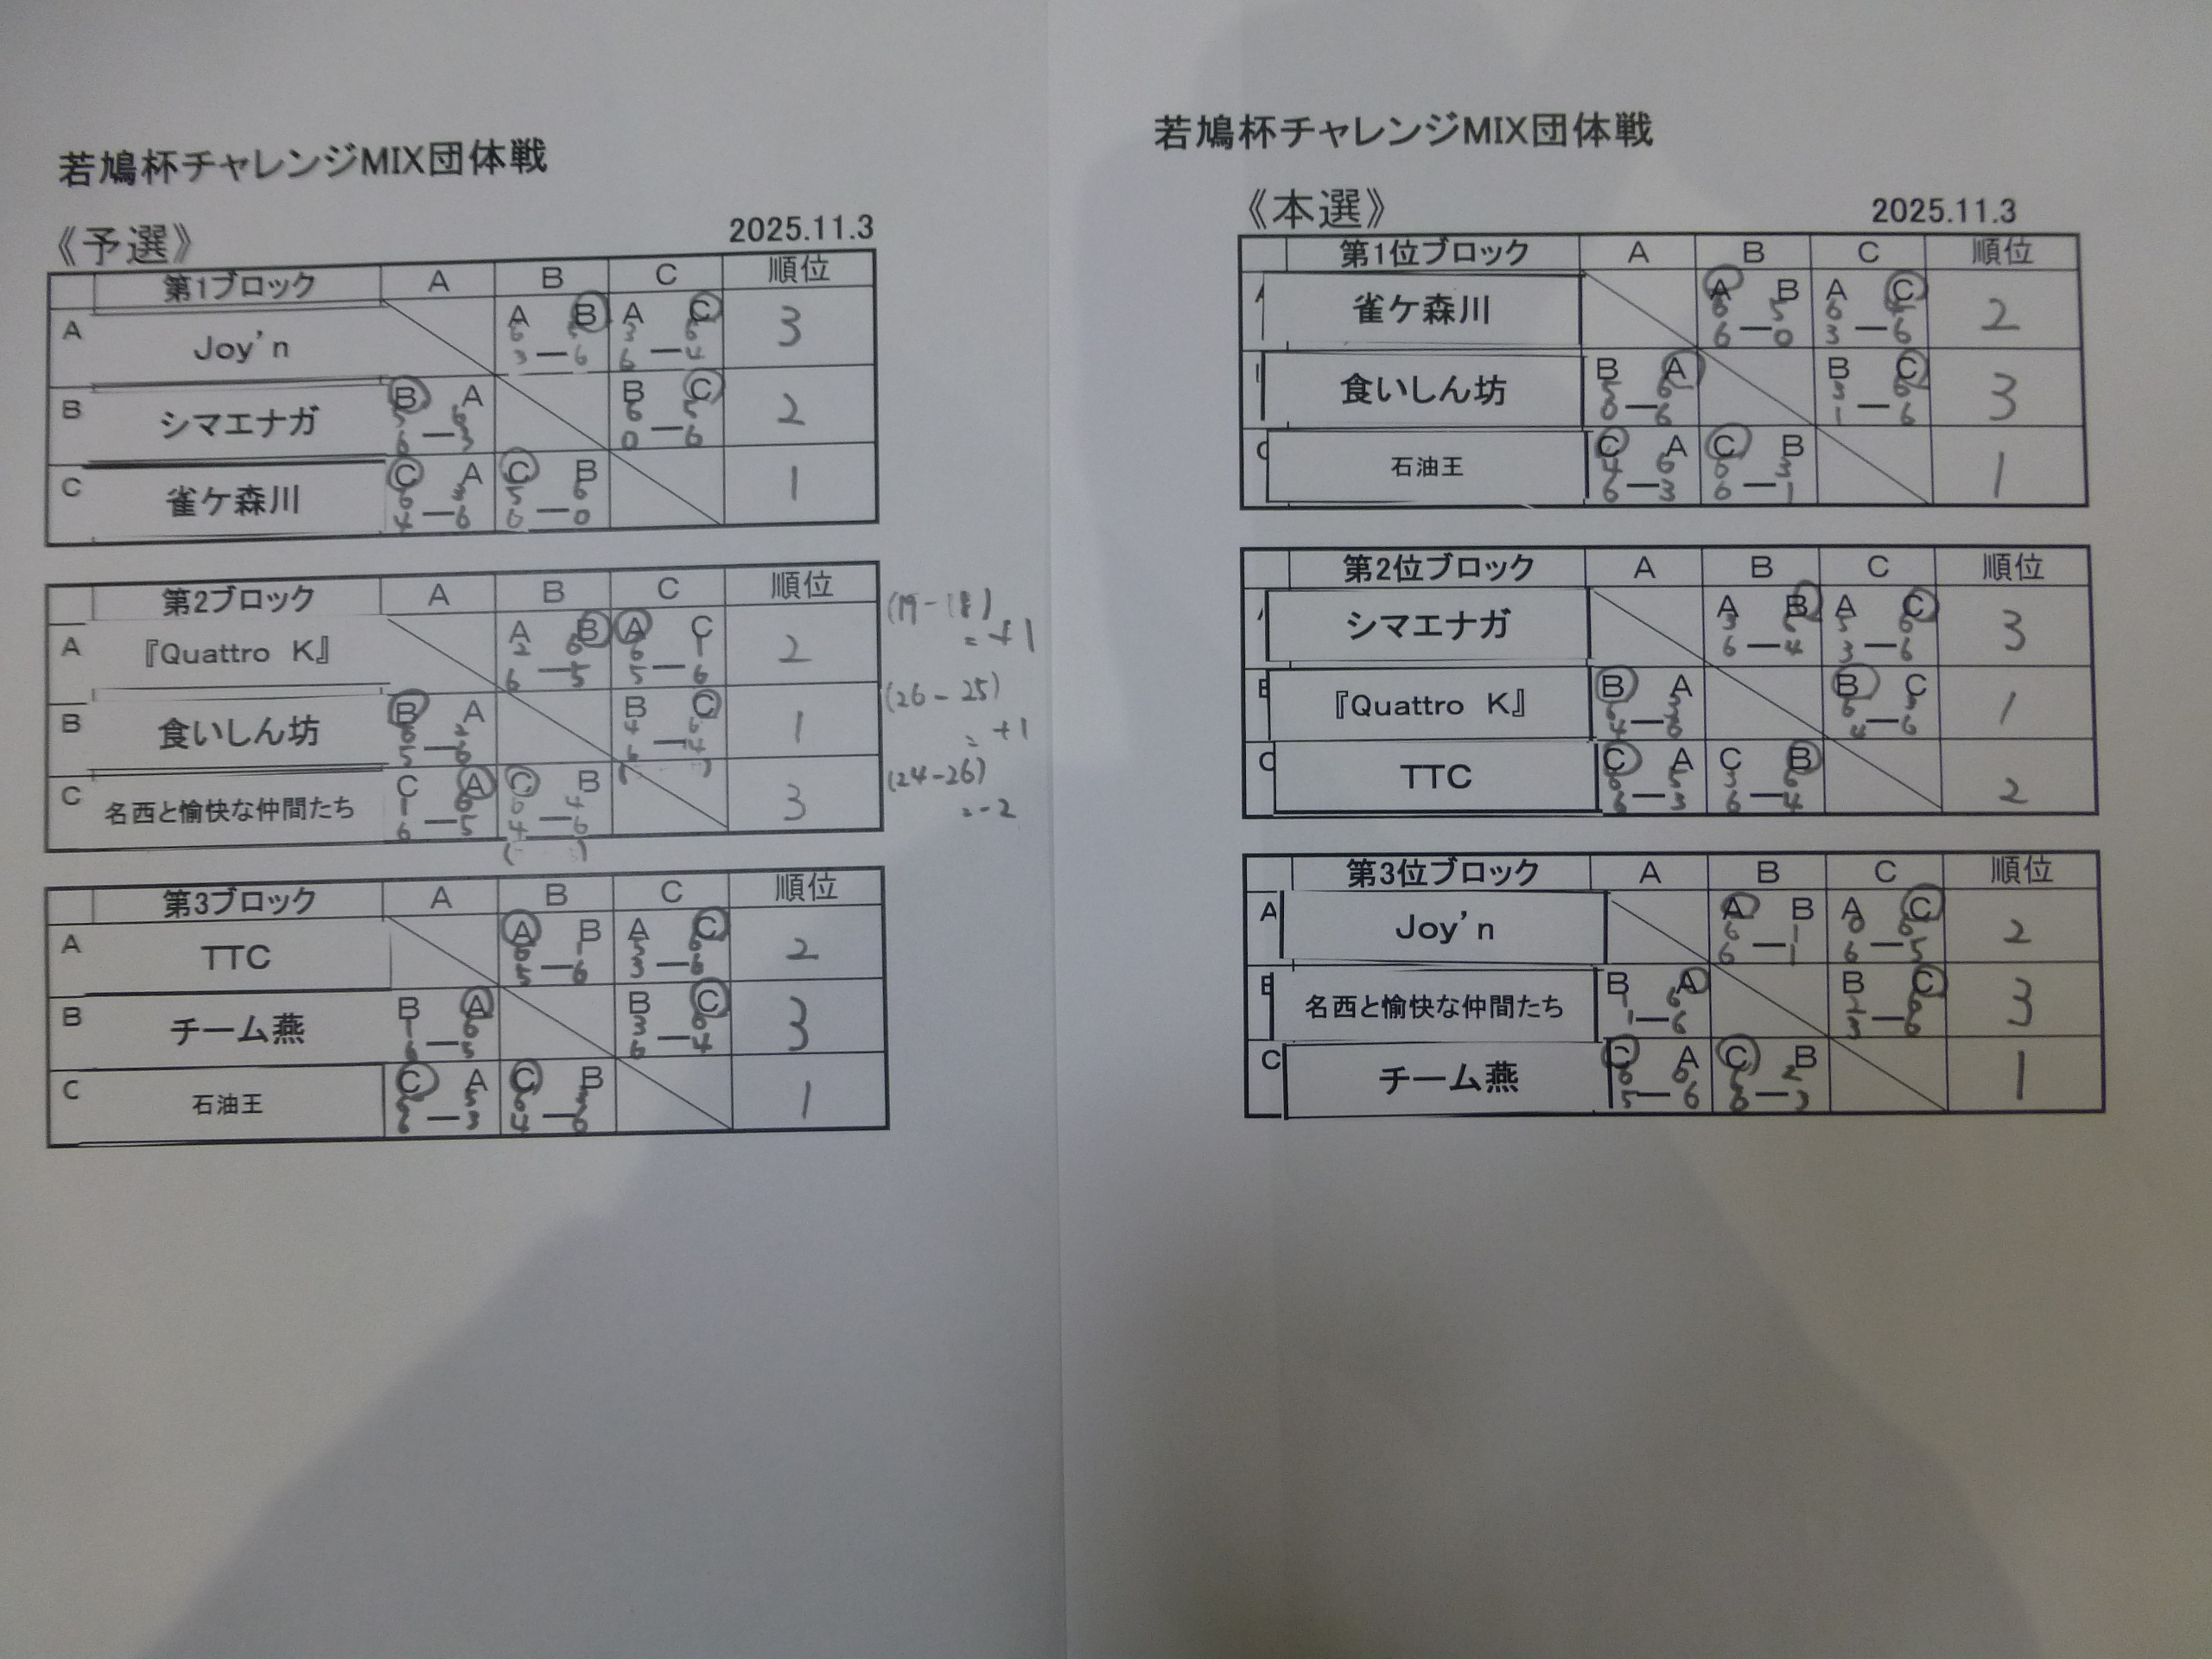 若鳩杯チャレンジMIX団体戦
《予選》
2025.11.3
第1ブロック A B C 順位
A Joy'n A B A C 3
6 5 3 6
3 — 6 6 — 4
B シマエナガ B A B C 2
5 6 6 5
6 — 3 0 — 6
C 雀ケ森川 C A C B 1
6 3 5 6
4 — 6 6 — 0
第2ブロック A B C 順位
A 『Quattro K』 A B A C 2 (19-18)
2 6 6 1 = +1
6 — 5 5 — 6
B 食いしん坊 B A B C 1 (26-25)
6 2 4 6 = +1
5 — 6 6 — 4
C 名西と愉快な仲間たち C A C B 3 (24-26)
1 6 6 4 = -2
6 — 5 4 — 6
第3ブロック A B C 順位
A TTC A B A C 2
6 1 5 6
5 — 6 3 — 6
B チーム燕 B A B C 3
1 6 3 6
6 — 5 6 — 4
C 石油王 C A C B 1
6 5 6 3
6 — 3 4 — 6
若鳩杯チャレンジMIX団体戦
《本選》
2025.11.3
第1位ブロック A B C 順位
雀ケ森川 A B A C 2
6 5 6 4
6 — 0 3 — 6
食いしん坊 B A B C 3
5 6 3 6
0 — 6 1 — 6
石油王 C A C B 1
4 6 6 3
6 — 3 6 — 1
第2位ブロック A B C 順位
シマエナガ A B A C 3
3 6 5 6
6 — 4 3 — 6
『Quattro K』 B A B C 1
6 3 6 3
4 — 6 4 — 6
TTC C A C B 2
6 5 3 6
6 — 3 6 — 4
第3位ブロック A B C 順位
A Joy'n A B A C 2
6 1 0 6
6 — 1 6 — 5
名西と愉快な仲間たち B A B C 3
1 6 2 6
1 — 6 3 — 6
C チーム燕 C A C B 1
6 0 6 2
5 — 6 6 — 3